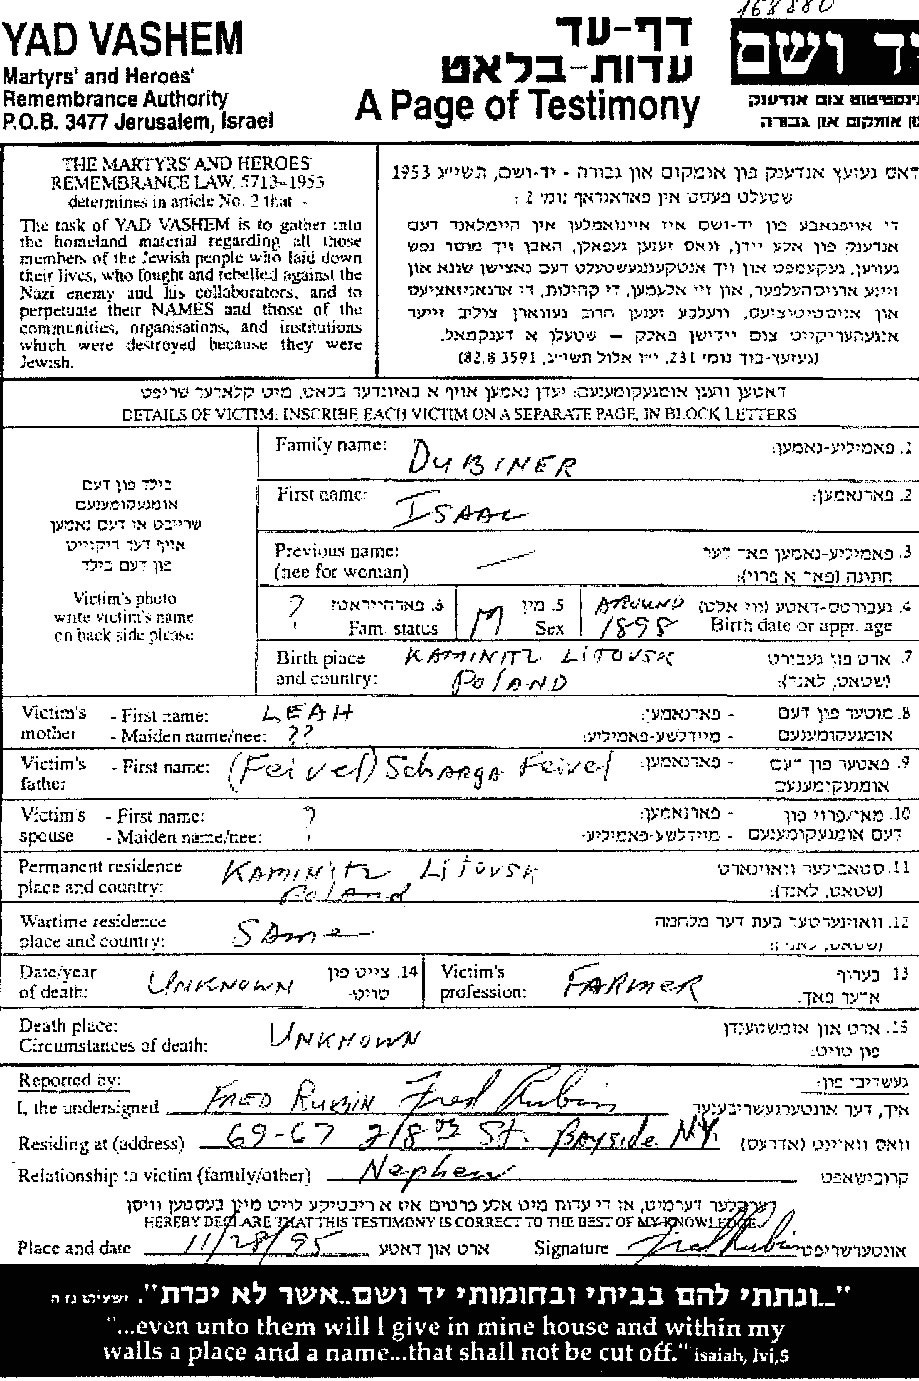 168880
YAD VASHEM
Martyrs' and Heroes'
Remembrance Authority
P.O.B. 3477 Jerusalem, Israel
דף-עד
עדות-בלאט
A Page of Testimony
יד ושם
אינסטיטוט צום אנדענק
פון אומקום און גבורה
THE MARTYRS' AND HEROES'
REMEMBRANCE LAW, 5713—1953
determines in article No. 2 that -
The task of YAD VASHEM is to gather into
the homeland material regarding all those
members of the Jewish people who laid down
their lives, who fought and rebelled against the
Nazi enemy and his collaborators, and to
perpetuate their NAMES and those of the
communities, organisations, and institutions
which were destroyed because they were
Jewish.
דאס געזעץ אנדענק פון אומקום און גבורה - יד-ושם, תשי"ג 1953
שטעלט פעסט אין פאראגראף נומ' 2 :
די אויפגאבע פון יד-ושם איז איינזאמלען אין היימלאנד דעם
אנדענק פון אלע יידן, וואס זענען געפאלן, האבן זיך מוסר נפש
געווען, געקעמפט און זיך אנטקעגנגעשטעלט דעם נאצישן שונא און
זיינע ארויסהעלפער, און זיי אלעמען, די קהילות, די ארגאניזאציעס
און אינסטיטוציעס, וועלכע זענען חרוב געווארן צוליב זייער
אנגעהעריקייט צום יידישן פאלק – שטעלן א דענקמאל.
דאטען וועגן אומגעקומענעם: יעדן נאמען אויף א באזונדער בלאט, מיט קלארער שריפט
DETAILS OF VICTIM: INSCRIBE EACH VICTIM ON A SEPARATE PAGE, IN BLOCK LETTERS
בילד פון דעם
אומגעקומענעם
שרייבט אן דעם נאמען
אויף דער ריקזייט
פון דעם בילד
Victim's photo
write victim's name
on back side please
Family name: DUBINER 1. פאמיליע-נאמען:
First name: ISAAC 2. פארנאמען:
Previous name: — 3. פאמיליע-נאמען פאר דער
(nee for woman) חתונה (פאר א פרוי):
? 6. פארהייראט? M 5. מין AROUND 4. געבורטס-דאטע (ווי אלט)
Fam. status Sex 1898 Birth date or appr. age
Birth place KAMINITZ LITOVSK 7. ארט פון געבורט
and country: POLAND (שטאט, לאנד):
Victim's - First name: LEAH - פארנאמען: 8. מוטער פון דעם
mother - Maiden name/nee: ?? - מיידלשע-פאמיליע: אומגעקומענעם
Victim's - First name: (Feivel) Scharga Feivel - פארנאמען: 9. פאטער פון דעם
father: אומגעקומענעם
Victim's - First name: ? - פארנאמען: 10. מאן/פרוי פון
spouse - Maiden name/nee: - מיידלשע-פאמיליע: דעם אומגעקומענעם
Permanent residence KAMINITZ LITOVSK 11. סטאבילער וואוינארט
place and country: Poland (שטאט, לאנד):
Wartime residence SAme 12. וואוינערטער בעת דער מלחמה
place and country: (שטאט, לאנד):
Date/year UNKNOWN 14. צייט פון Victim's FARMER 13 בערוף
of death: טויט- profession: אדער פאך.
Death place: UNKNOWN 15. ארט און אומשטענדן
Circumstances of death: פון טויט:
Reported by: געשריבן פון:
I, the undersigned FRED RUBIN Fred Rubin איך, דער אונטערגעשריבענער
Residing at (address) 69-67 218th St. Bayside N.Y. וואס וואוינט (אדרעס)
Relationship to victim (family/other) Nephew קרובישאפט
דערקלער דערמיט, אז די עדות מיט אלע פרטים איז א ריכטיקע לויט מיין בעסטען וויסן
HEREBY DECLARE THAT THIS TESTIMONY IS CORRECT TO THE BEST OF MY KNOWLEDGE
Place and date 11/28/95 ארט און דאטע Signature Fred Rubin אונטערשריפט
"...ונתתי להם בביתי ובחומותי יד ושם..אשר לא יכרת". ישעיהו נו ה
"...even unto them will I give in mine house and within my
walls a place and a name...that shall not be cut off." isaiah, lvi,5